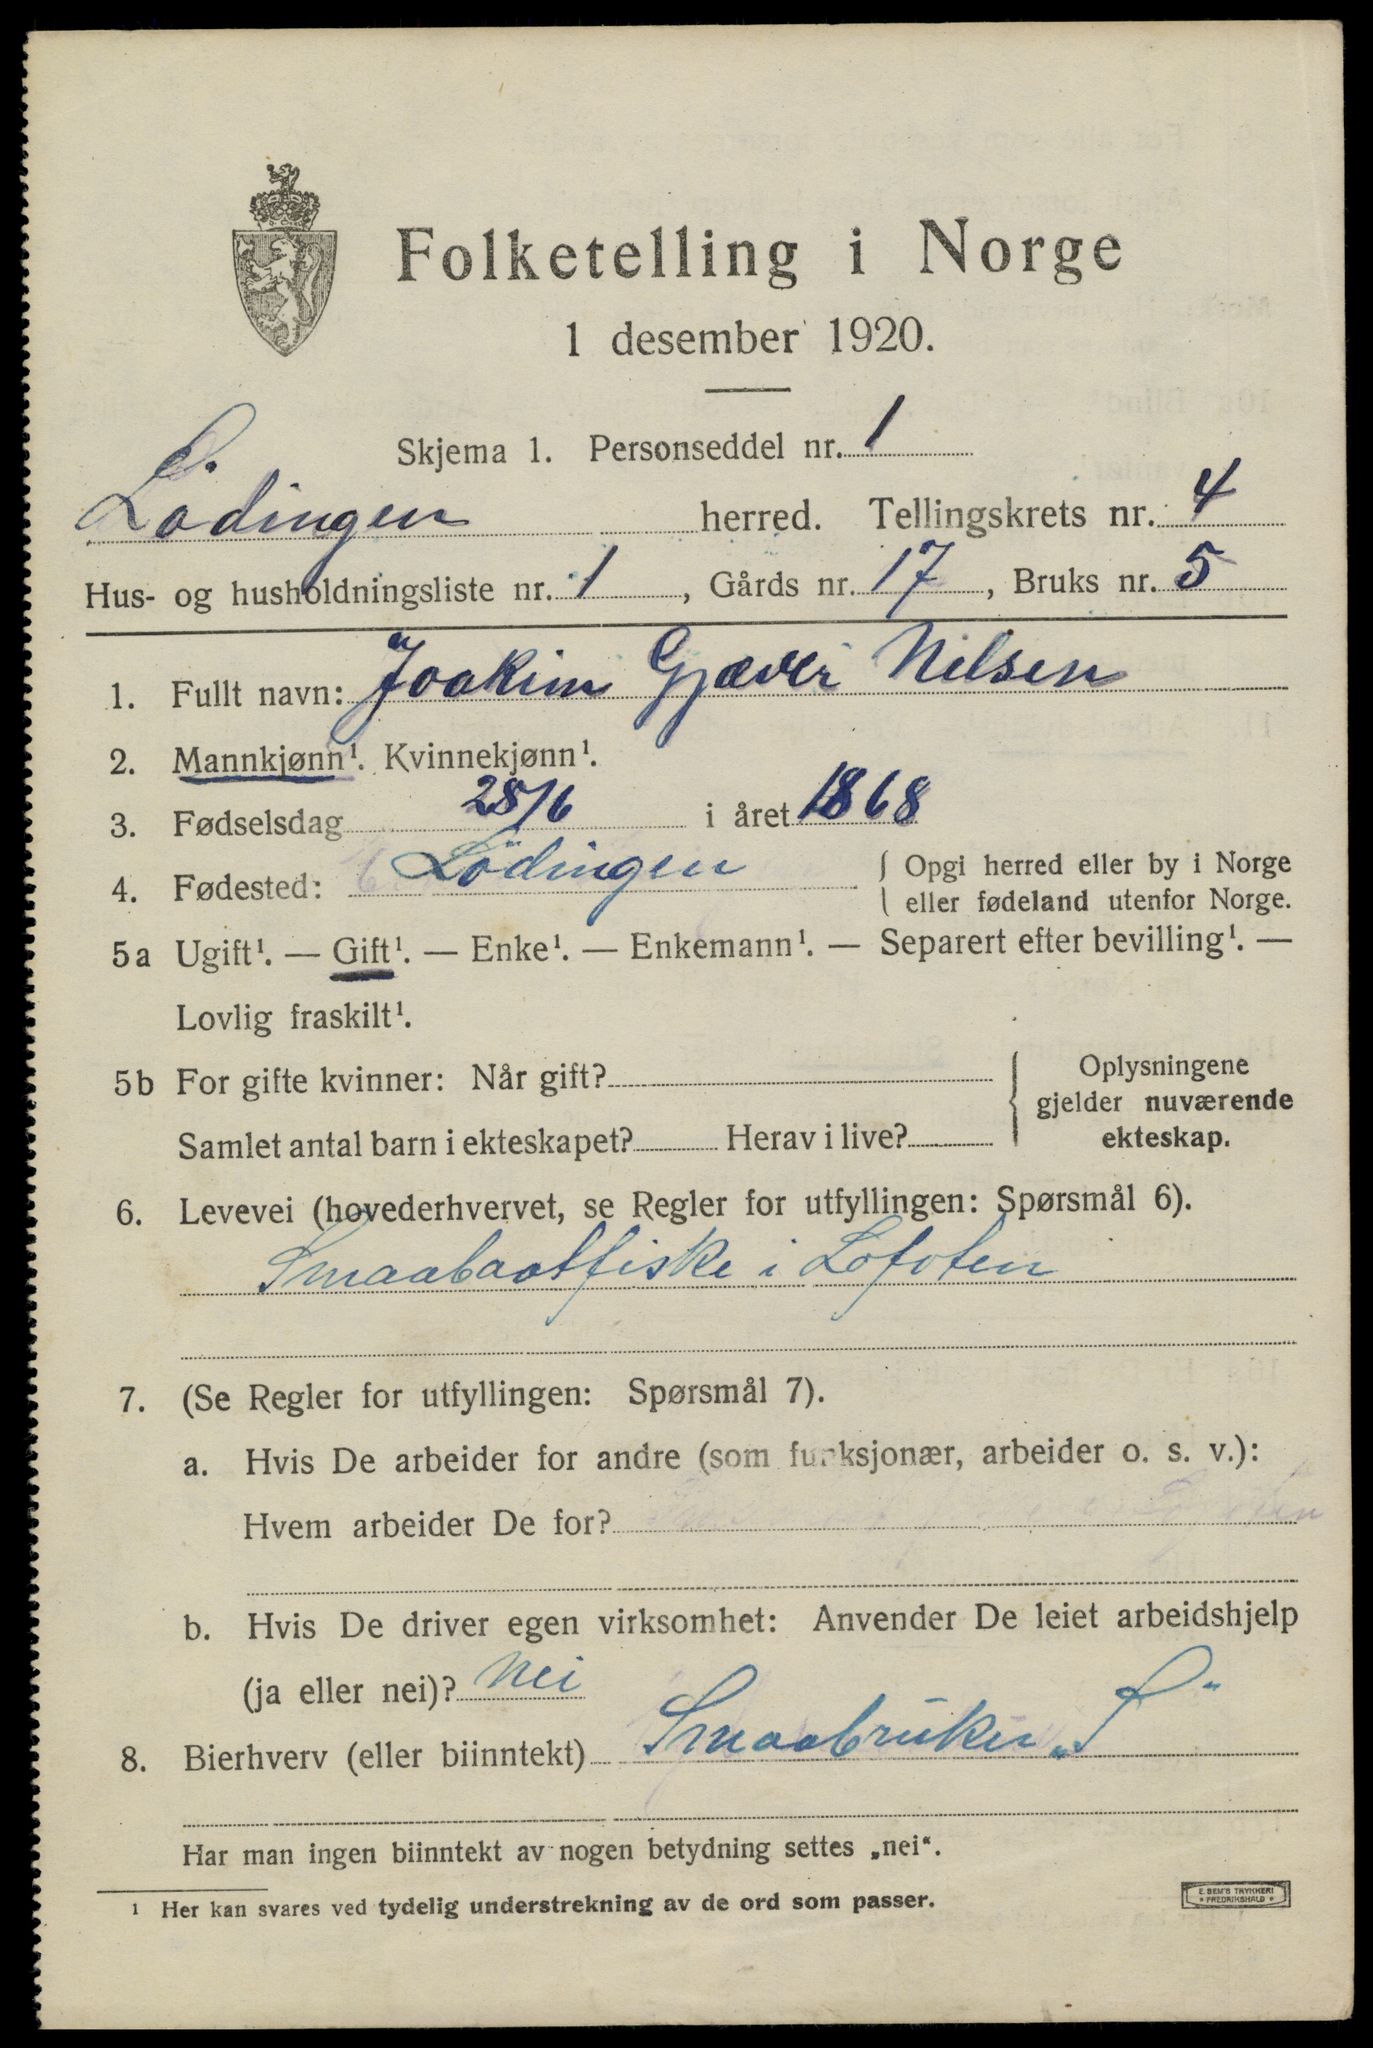 Folketelling i Norge
1 desember 1920.
Skjema 1. Personseddel nr. 1
Lødingen herred. Tellingskrets nr. 4
Hus- og husholdningsliste nr. 1, Gårds nr. 17, Bruks nr. 5
1. Fullt navn: Joakim Gjæver Nilsen
2. Mannkjønn¹. Kvinnekjønn¹.
3. Fødselsdag 28/6 i året 1868
4. Fødested: Lödingen { Opgi herred eller by i Norge
eller fødeland utenfor Norge.
5a Ugift¹. — Gift¹. — Enke¹. — Enkemann¹. — Separert efter bevilling¹. —
Lovlig fraskilt¹.
5b For gifte kvinner: Når gift?
Samlet antal barn i ekteskapet? Herav i live?
Oplysningene
gjelder nuværende
ekteskap.
6. Levevei (hovederhvervet, se Regler for utfyllingen: Spørsmål 6).
Smaabaatfiske i Lofoten
7. (Se Regler for utfyllingen: Spørsmål 7).
a. Hvis De arbeider for andre (som funksjonær, arbeider o. s. v.):
Hvem arbeider De for?
b. Hvis De driver egen virksomhet: Anvender De leiet arbeidshjelp
(ja eller nei)? Nei
8. Bierhverv (eller biinntekt) Smaabruker „S"
Har man ingen biinntekt av nogen betydning settes „nei“.
¹ Her kan svares ved tydelig understrekning av de ord som passer.
E. SEM'S TRYKKERI
* FREDRIKSHALD *